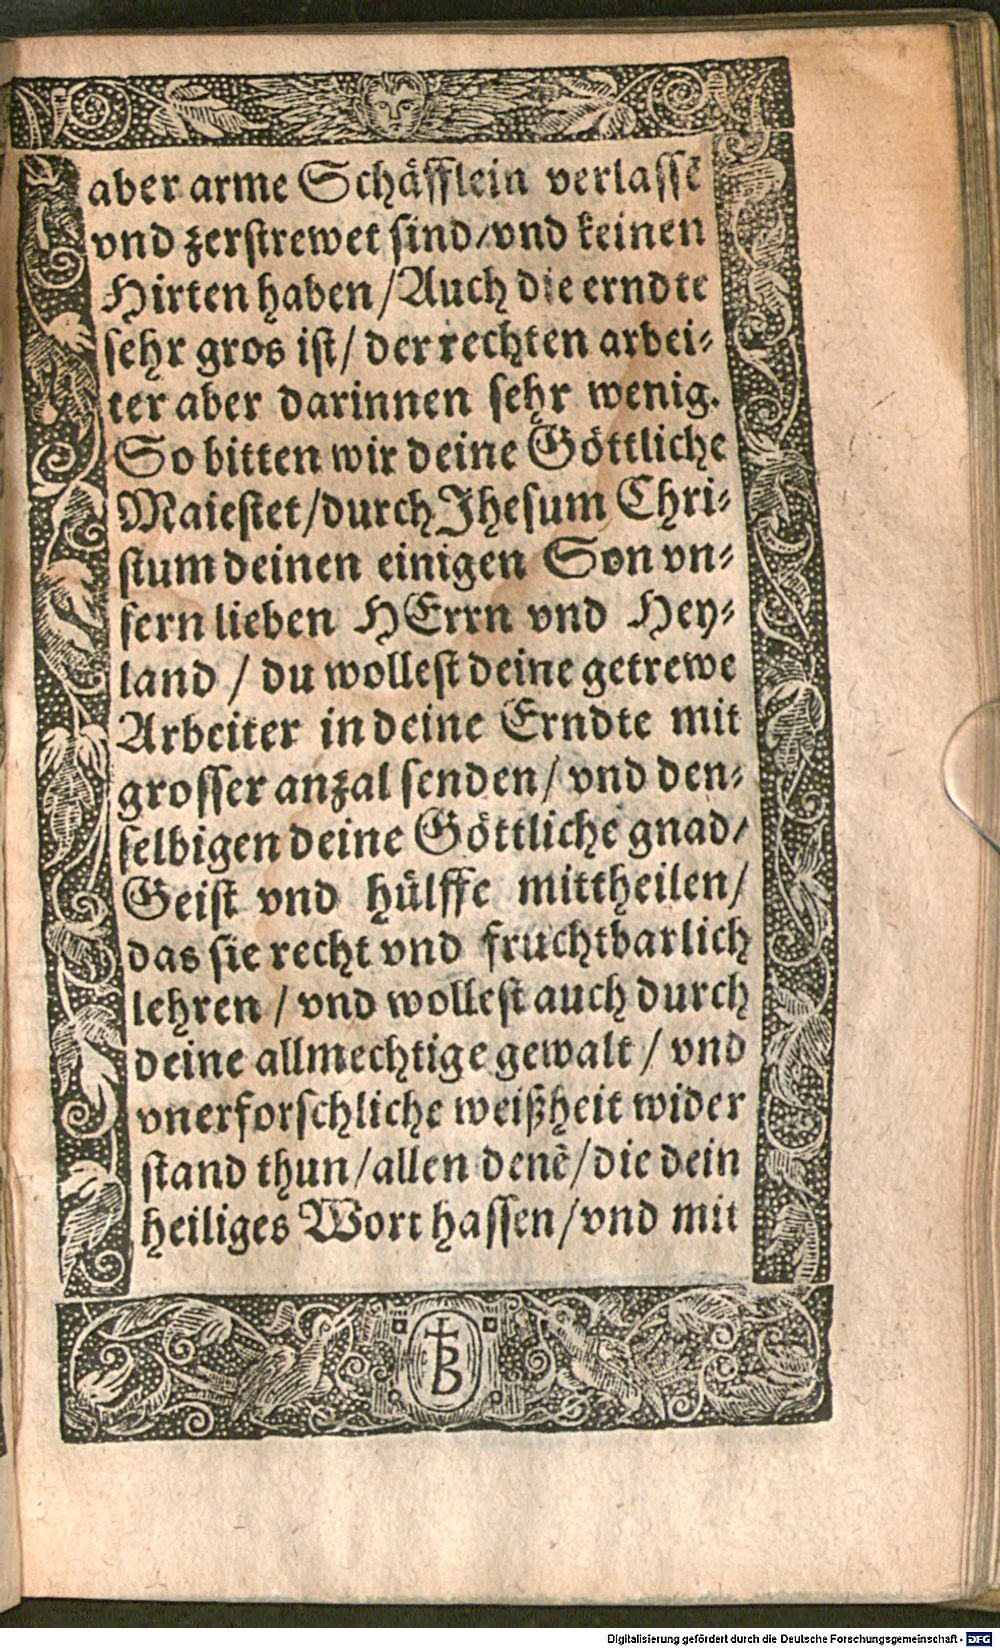 aber arme Schäfflein verlassē
vnd zerstrewet sind/vnd keinen
Hirten haben/Auch die erndte
sehr gros ist/ der rechten arbei-
ter aber darinnen sehr wenig.
So bitten wir deine Göttliche
Maiestet/durch Jhesum Chri-
stum deinen einigen Son vn-
sern lieben HErrn vnd Hey-
land / du wollest deine getrewe
Arbeiter in deine Erndte mit
grosser anzal senden/ vnd den-
selbigen deine Göttliche gnad/
Geist vnd hülffe mittheilen/
das sie recht vnd fruchtbarlich
lehren / vnd wollest auch durch
deine allmechtige gewalt / vnd
vnerforschliche weißheit wider
stand thun/allen denē/die dein
heiliges Wort hassen/vnd mit
B
Digitalisierung gefördert durch die Deutsche Forschungsgemeinschaft - DFG